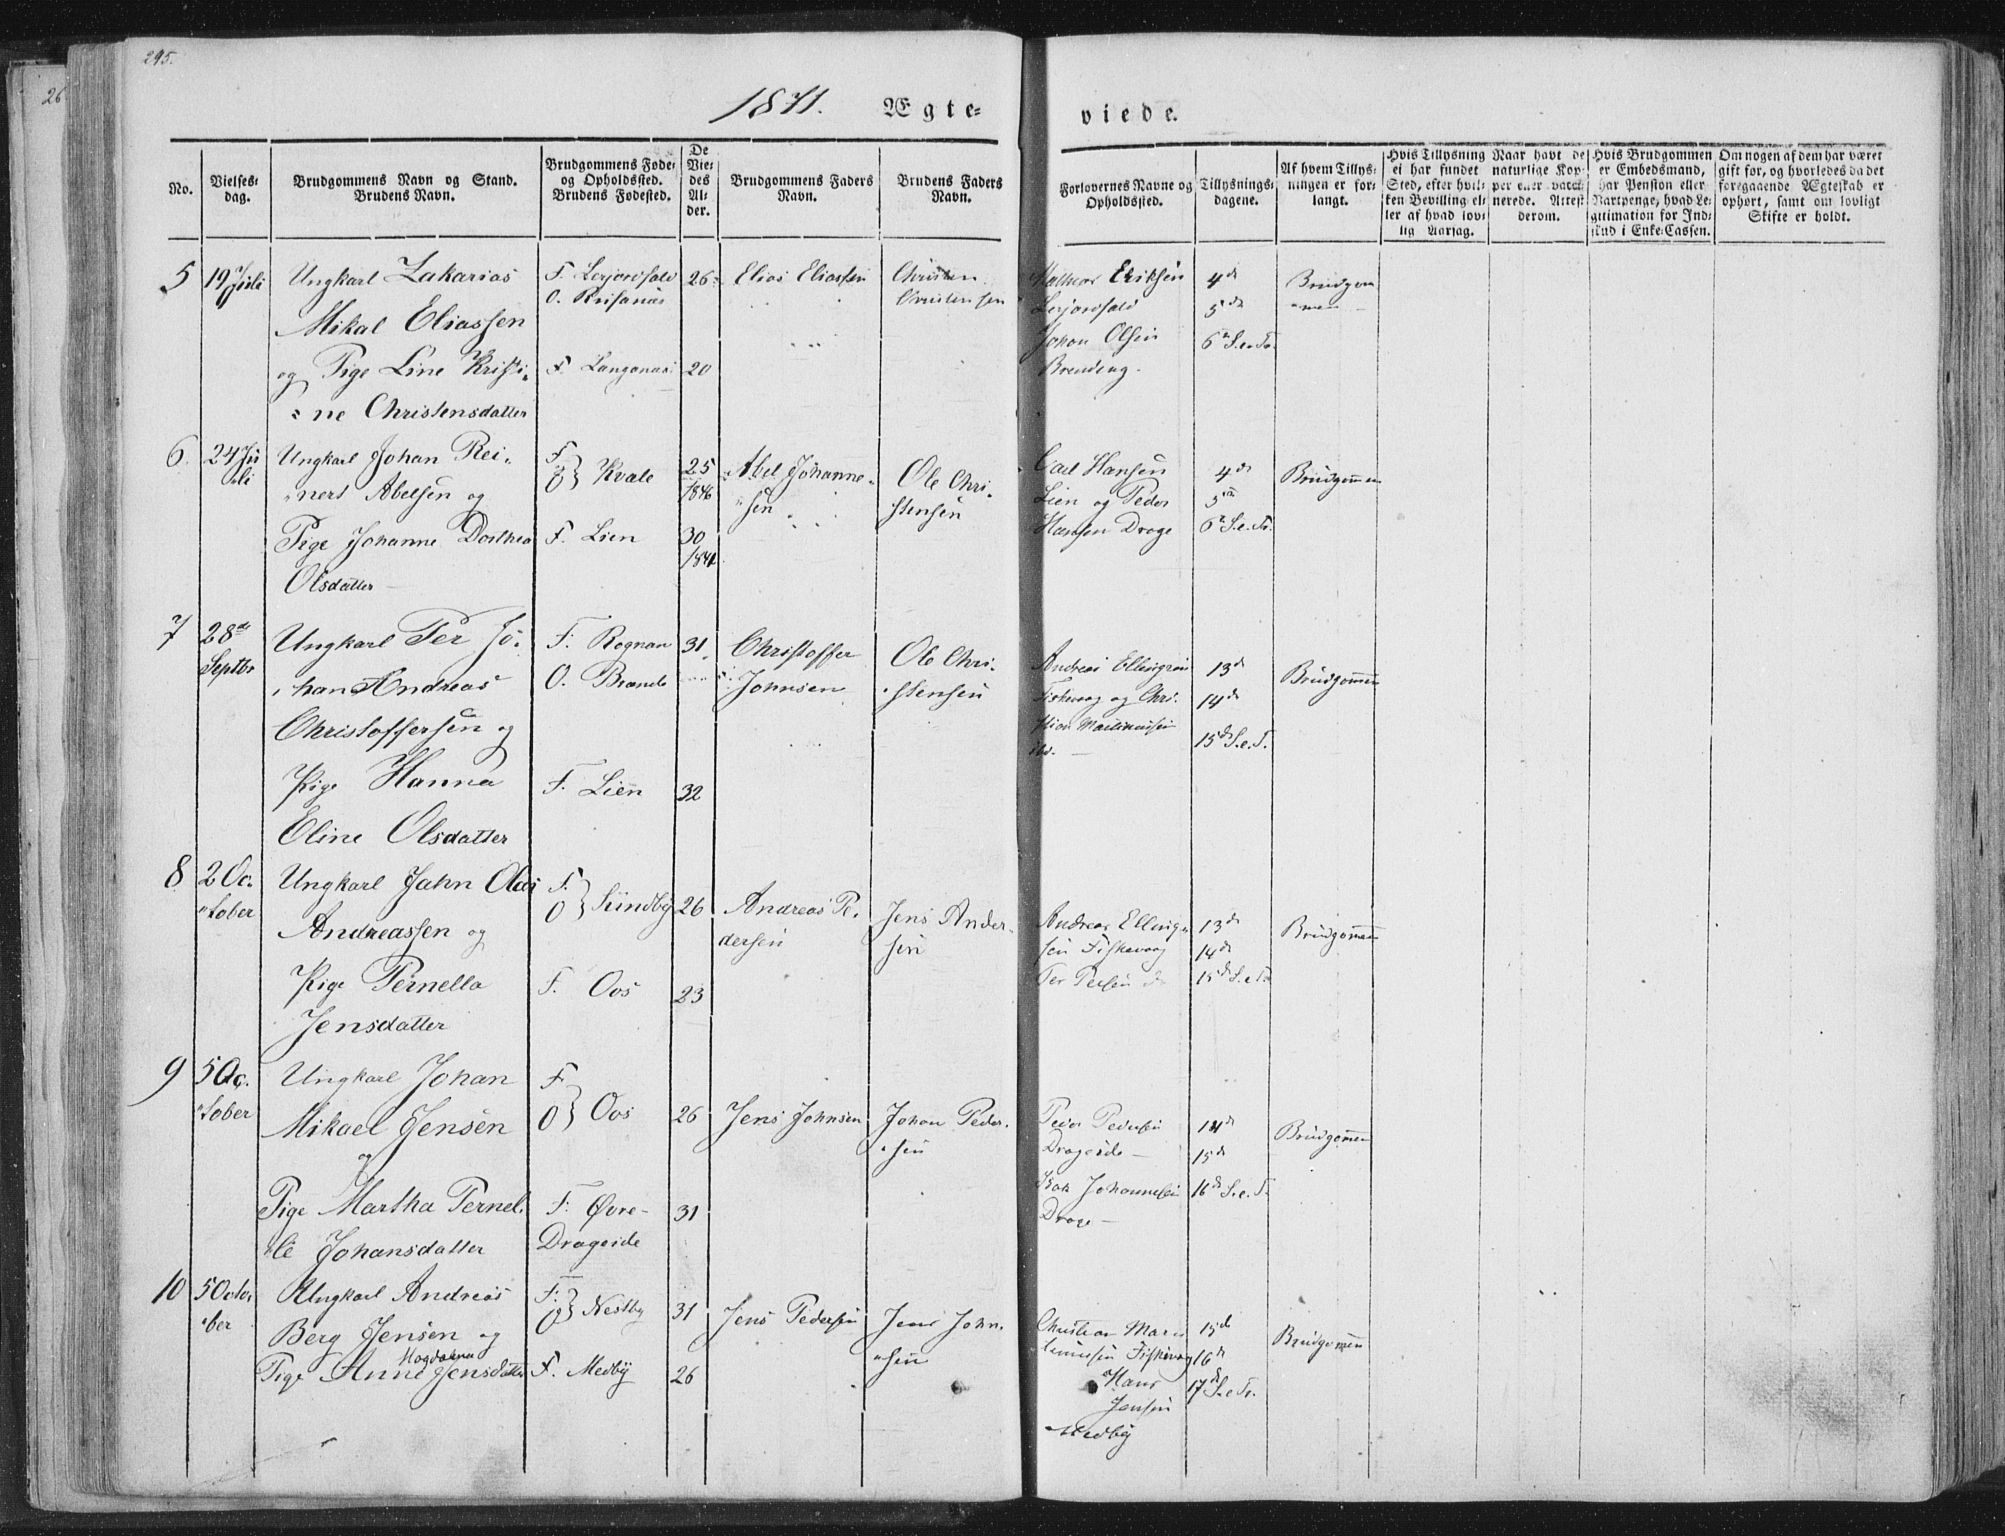 295.
26
1871. Ægte=
viede.
No.
Vielses=
dag.
Brudgommens Navn og Stand.
Brudens Navn.
Brudgommens Føde=
og Opholdssted.
Brudens Fødested.
De
Vie=
des
Al=
der.
Brudgommens Faders
Navn.
Brudens Faders
Navn.
Forlovernes Navne og
Opholdssted.
Tillysnings=
dagene.
Af hvem Tillys=
ningen er for=
langt.
Hvis Tillysning
ei har fundet
Sted, efter hvil=
ken Bevilling el=
ler af hvad lov=
lig Aarsag.
Naar havt de
naturlige Kop=
per eller vacci=
nerede. Attest
derom.
Hvis Brudgommen
er Embedsmand,
har Pension eller
Vartpenge, hvad Le=
gitimation for Ind=
skud i Enke=Cassen.
Om nogen af dem har været
gift før, og hvorledes da det
foregaaende Ægteskab er
ophørt, samt om lovligt
Skifte er holdt.
5
19 Juli
Ungkarl Zakarias
Mikal Eliassen
og Pige Line Kristi-
ne Christensdatter
F.
O.
F. Langanas
26
20
Elias Eliassen
Christen
Christensen
Eriksen
Johan Olsen
4de
5de
6te S. e. Tr.
Brudgom
men
6.
24 Ju
li
Ungkarl Johan Rei-
nert Abelsen og
Pige Johanne Dorthea
Olsdatter
F.
O. } Kvale
F. Lien
25
1846
30
1841
Abel Johanne-
sen
Ole Chri-
stensen
Carl Hansen
Lien og Peder
Hansen Drage
4de
5te
6te S. e. Tr.
Brudgommen
7
28de
Septbr
Ungkarl Per Jo-
han Andreas
Christoffersen og
Pige Hanna
Eline Olsdatter
F. Rognan
O. Brande
F. Lien
31
32
Christoffer
Johnsen
Ole Chri-
stensen
Andreas Ellingsen
Fiskvaag og Chri-
stian Martinusen
ibd.
13de
14de
15de S. e. T.
Brudgommen
8
2 Oc-
tober
Ungkarl Jahn Olai
Andreassen og
Pige Pernella
Jensdatter
F.
O } Sundby
F. Oos
26
23
Andreas Pe-
dersen
Jens Ander-
sen
Andreas Elling-
sen Fiskevaag
Per
13de
14de
15de S. e. Tr
Brudgommen
9
5 Oc-
tober
Ungkarl Johan
Mikael Jensen
og
Pige Martha Pernel-
le Johansdatter
F
O } Oos
F. Øvre-
Drageide
26
31
Jens Johnsen
Johan Peder-
sen
Peder Pedersen
Drageide
Johannesen
Drage
14de
15de
16de S. e. T.
Brudgommen
10
5 Octo-
ber
Ungkarl Andreas
Berg Jensen og
Magdalena
Pige Anne Jensdatter
F.
O } Nestby
F. Medby
31
26
Jens Pedersen
Jens John-
sen
Christian Mar-
tinusen Fiskvaag
Hans
Jensen
Medby
15de
16de
17de S. e. Tr.
Brudgommen